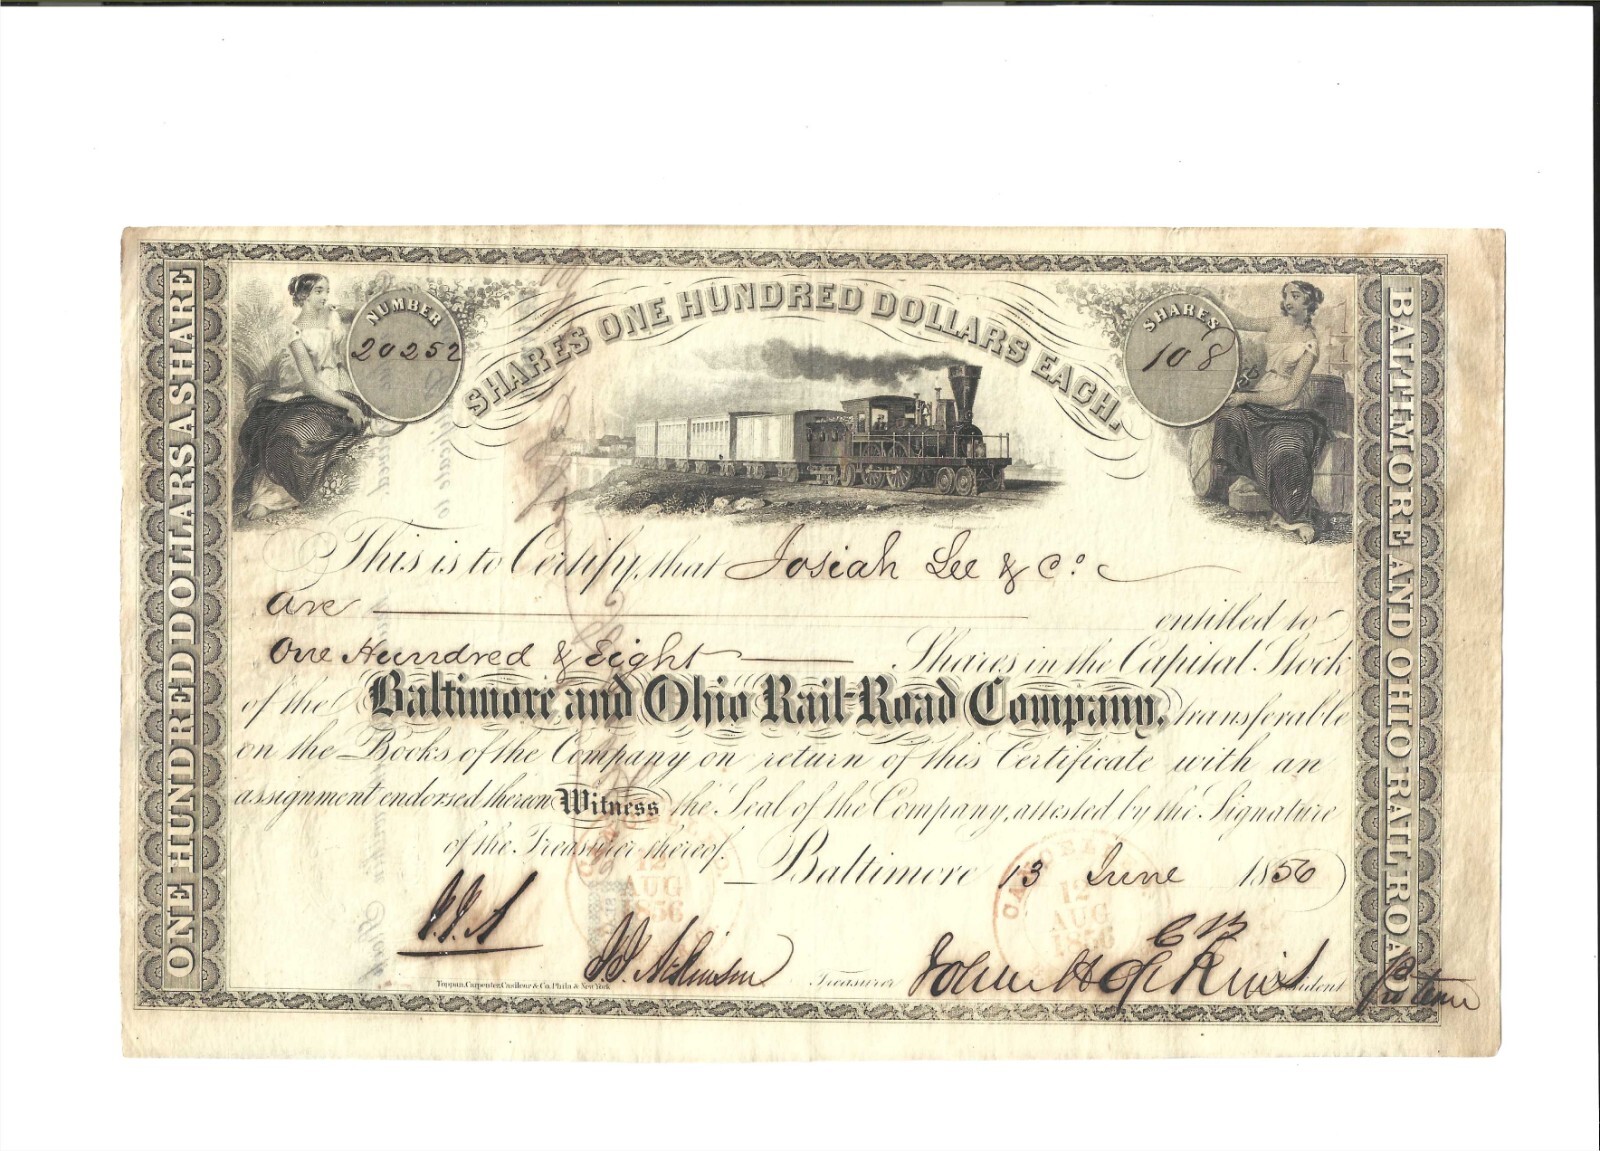 NUMBER
20252
SHARES ONE HUNDRED DOLLARS EACH.
SHARES
108
ONE HUNDRED DOLLARS A SHARE
BALTIMORE AND OHIO RAIL ROAD
This is to Certify, that Josiah Lee & Co.
are entitled to
One Hundred & Eight Shares in the Capital Stock
of the Baltimore and Ohio Rail-Road Company, transferable
on the Books of the Company on return of this Certificate with an
assignment endorsed thereon Witness the Seal of the Company, attested by the Signature
of the Treasurer thereof. Baltimore 13 June 1856
CANCELLED
12
AUG
1856
CANCELLED
12
AUG
1856
J.J.A
J J Atkinson Treasurer
John Hopkins President Pro tem
Toppan, Carpenter, Casilear & Co. Phila & New York